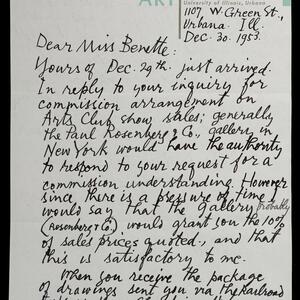 ART
University of Illinois, Urbana
1107 W. Green St.,
Urbana Ill.
Dec. 30. 1953.
Dear Miss Benette:
Yours of Dec. 29th just arrived.
In reply to your inquiry for
commission arrangement on
Arts Club show sales; generally
the Paul Rosenberg & Co., gallery in
New York would have the authority
to respond to your request for a
commission understanding. However
since there is a pressure of time I
would say that the Gallery probably
(Rosenberg & Co.) would grant you the 10%
of sales prices quoted, and that
this is satisfactory to me.
When you receive the package
of drawings sent you via the Railroad